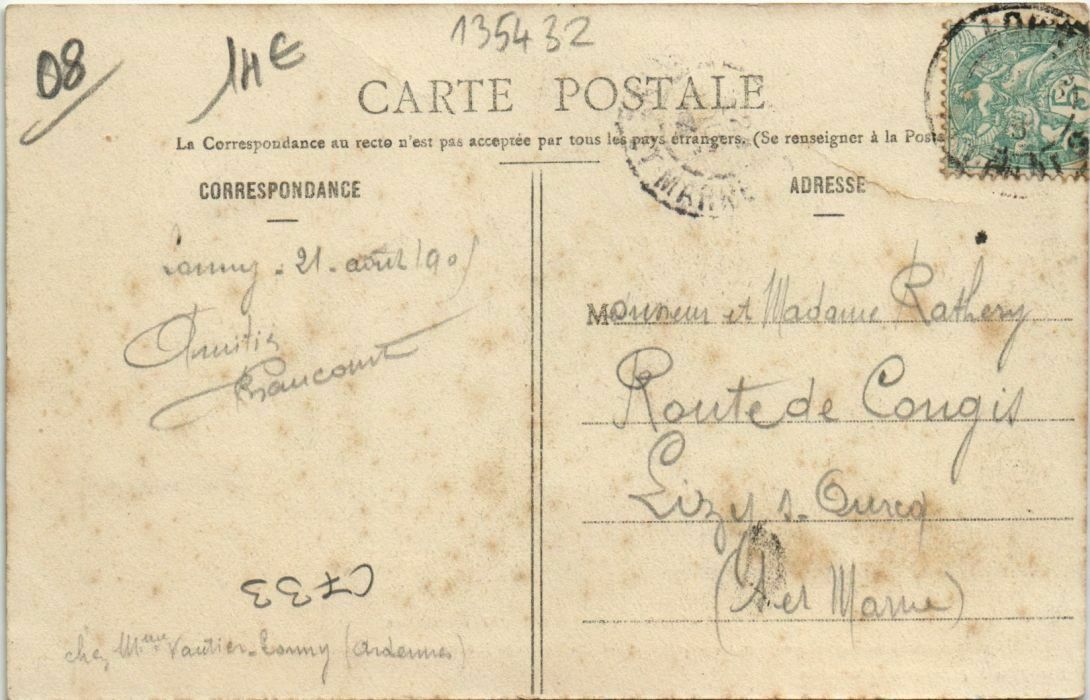 135432
08
14€
CARTE POSTALE
La Correspondance au recto n'est pas acceptée par tous les pays étrangers. (Se renseigner à la Poste
CORRESPONDANCE
Lonny - 21 - août 190
Amitiés
ADRESSE
Monsieur et Madame Rathery
Route de Congis
Lizy s. Ourcq
(S et Marne)
MARNE
5
C733
chez Mme Vautier - Lonny (Ardennes)